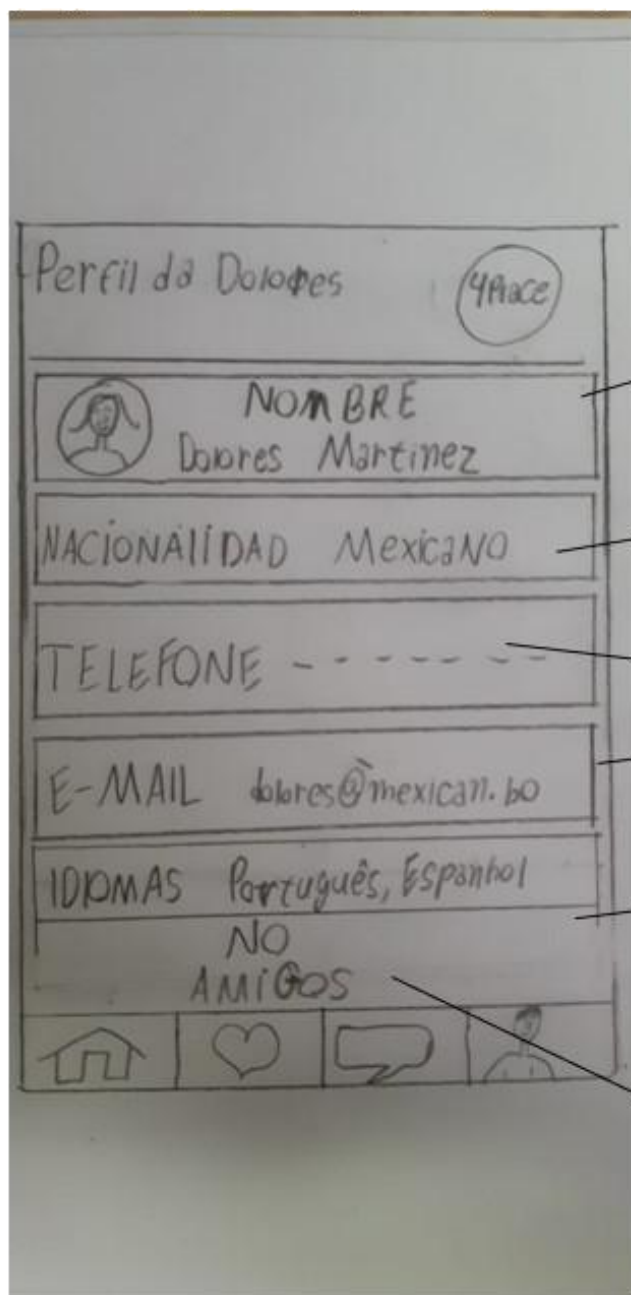 Perfil da Dolores
4Place
NOMBRE
Dolores Martinez
NACIONALIDAD Mexicano
TELEFONE - - - - - - -
E-MAIL dolores@mexican.bo
IDIOMAS Português, Espanhol
NO
AMIGOS